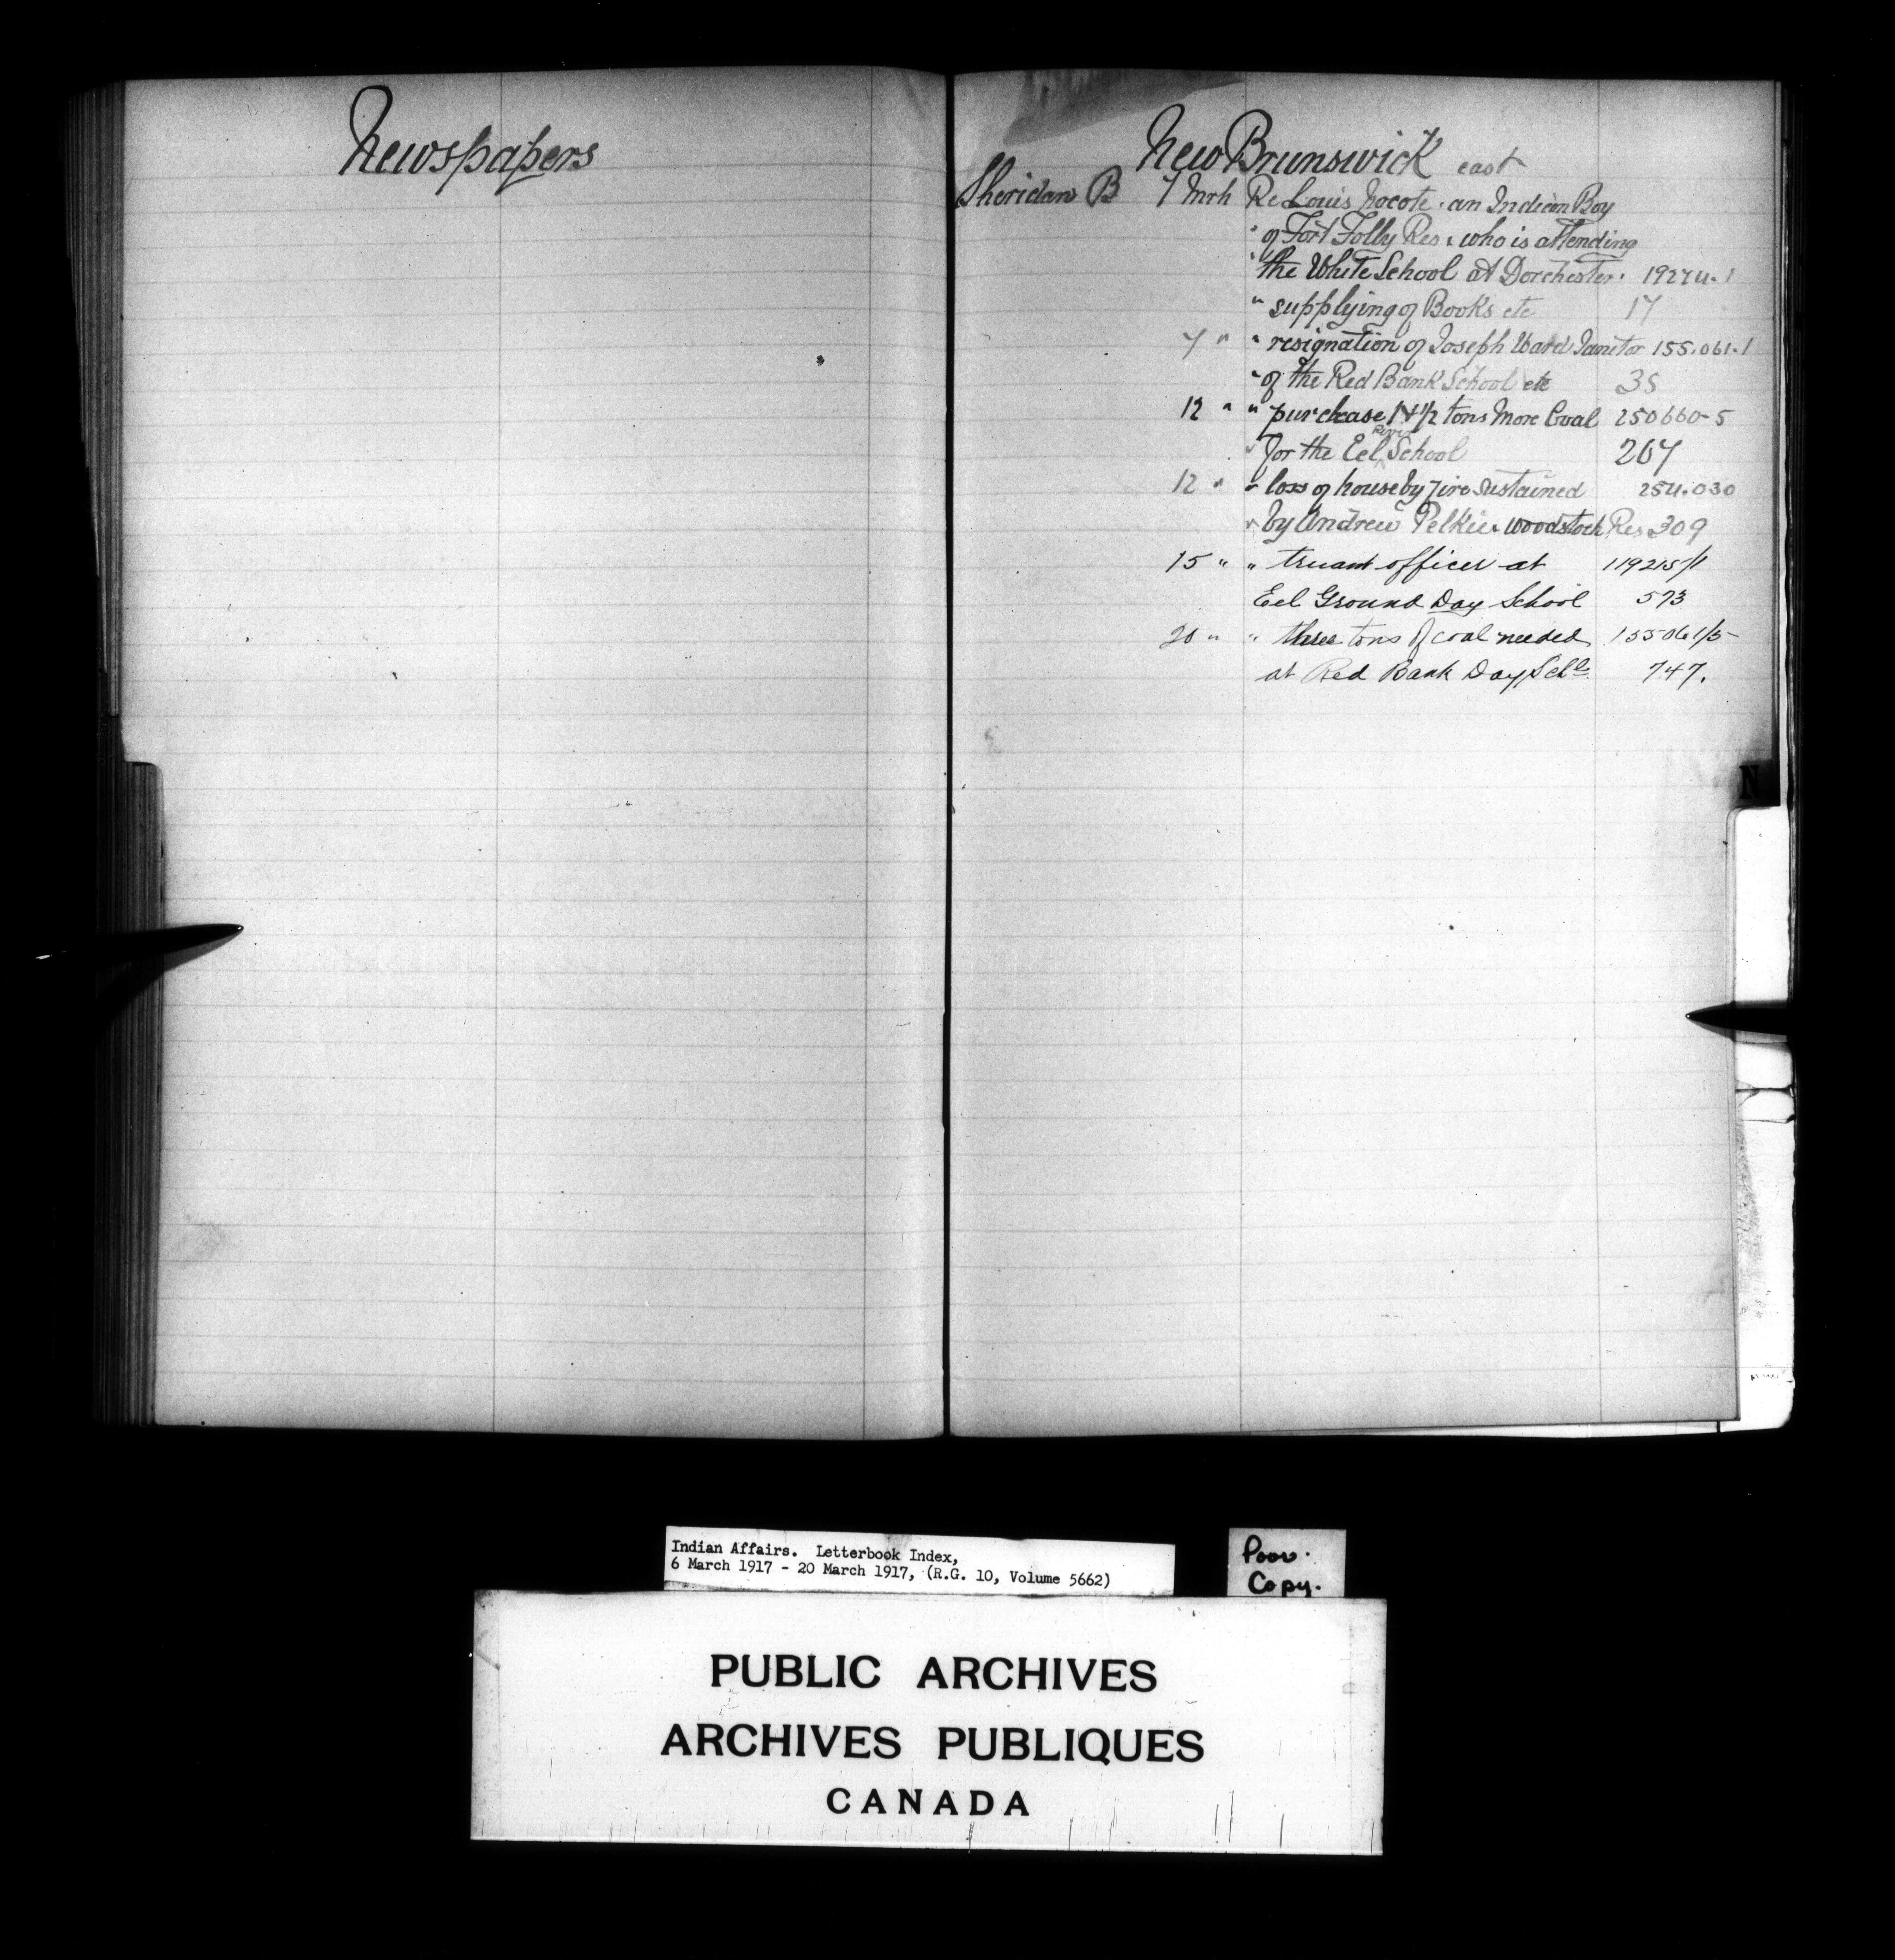 Newspapers
New Brunswick east
Sheridan B 7 Mrh Re Louis Nocote. an Indian Boy
" of Fort Folly Res. who is attending
" the White School at Dorchester. 19274-1
" supplying of Books etc 17
7 " " resignation of Joseph Ward Janitor 155.061.1
" of the Red Bank School etc 35
12 " " purchase 1 1/2 tons More Coal 250660-5
" for the Eel River School 207
12 " " loss of house by fire sustained 254.030
" by Andrew Pelkie Woodstock Res 309
15 " " truant officer at 119215/1
Eel Ground Day School 573
20 " " three tons of coal needed 155061/5
at Red Bank Day Schl. 747.
N
Indian Affairs. Letterbook Index,
6 March 1917 - 20 March 1917, (R.G. 10, Volume 5662)
Poor.
Copy.
PUBLIC ARCHIVES
ARCHIVES PUBLIQUES
CANADA